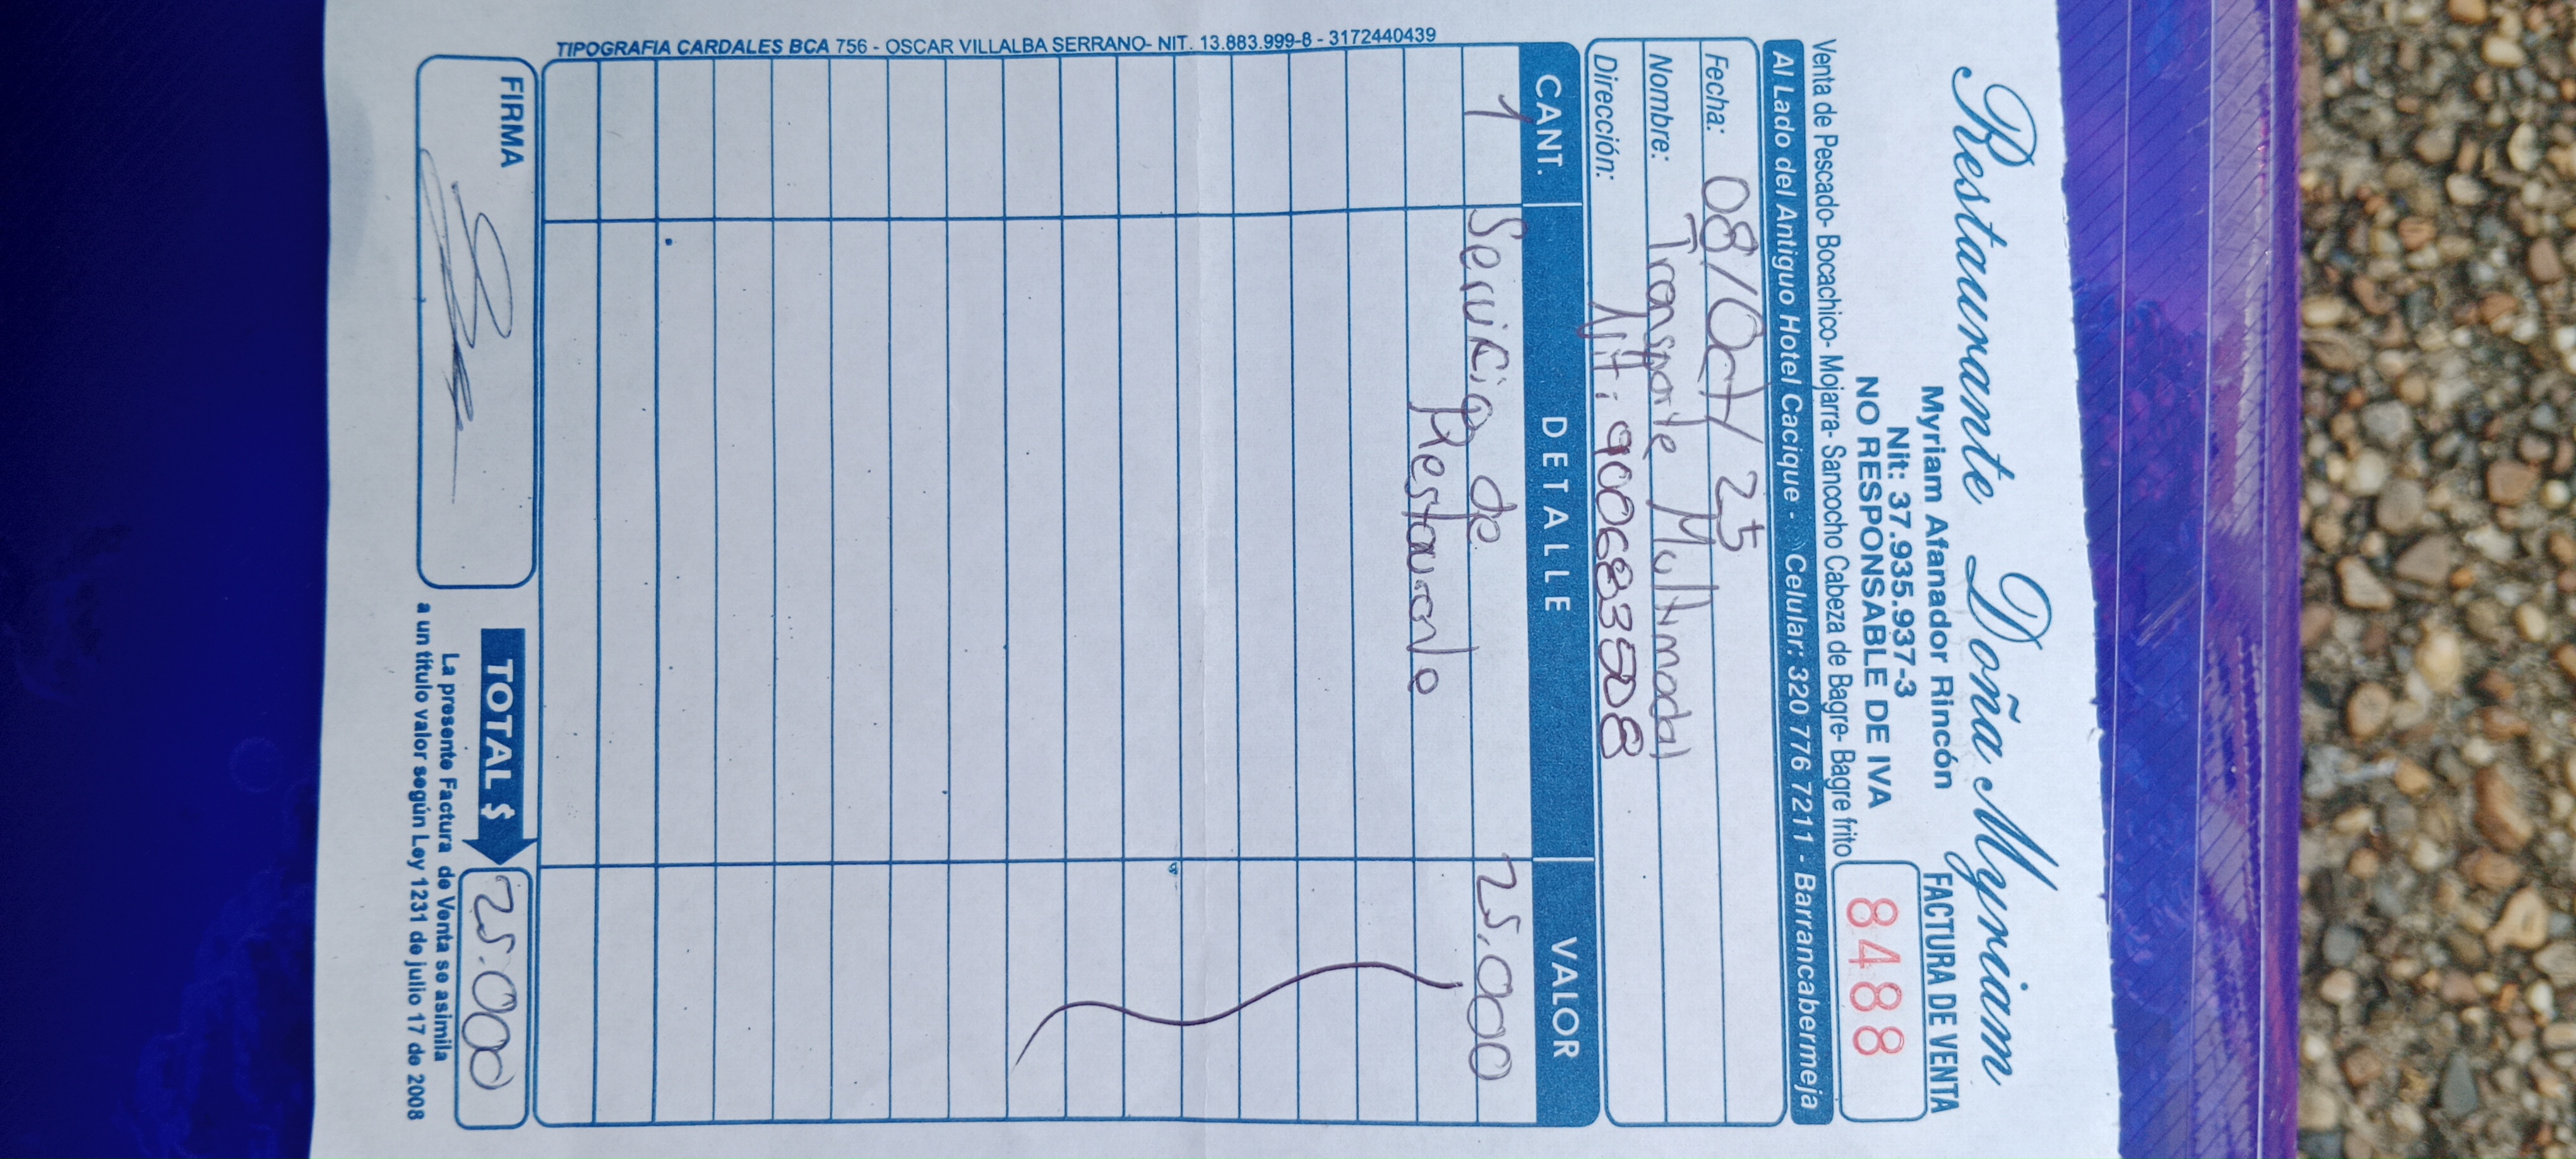 Restaurante Doña Myriam
Myriam Afanador Rincón
Nit: 37.935.937-3
NO RESPONSABLE DE IVA
FACTURA DE VENTA
8488
Venta de Pescado- Bocachico- Mojarra- Sancocho Cabeza de Bagre- Bagre frito
Al Lado del Antiguo Hotel Cacique - Celular: 320 776 7211 - Barrancabermeja
Fecha: 08/Oct/25
Nombre: Transporte Multimodal
Dirección: Nit: 900683508
CANT. DETALLE VALOR
1 Servicio de 25.000
Restaurante
TIPOGRAFIA CARDALES BCA 756 - OSCAR VILLALBA SERRANO- NIT. 13.883.999-8 - 3172440439
FIRMA
TOTAL $ 25.000
La presente Factura de Venta se asimila
a un título valor según Ley 1231 de julio 17 de 2008